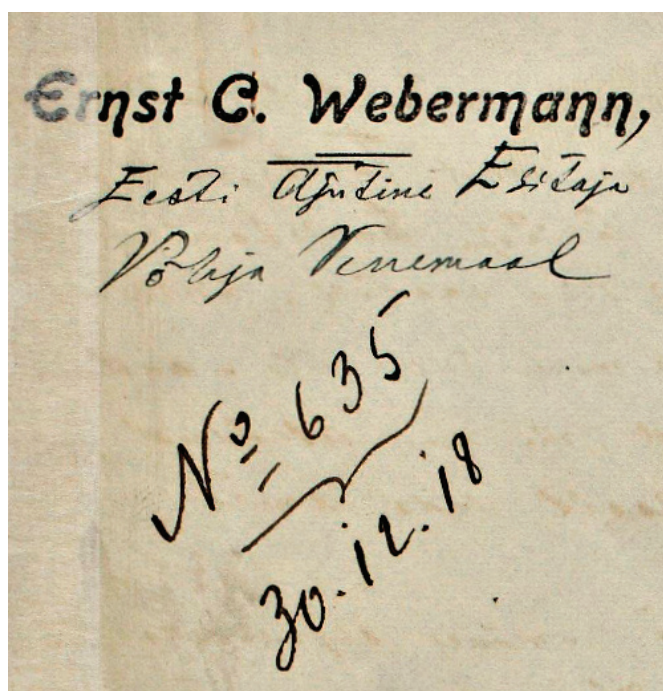 Ernst C. Webermann,
Eesti Ajutine Esitaja
Põhja Venemaal
No 635
30.12.18